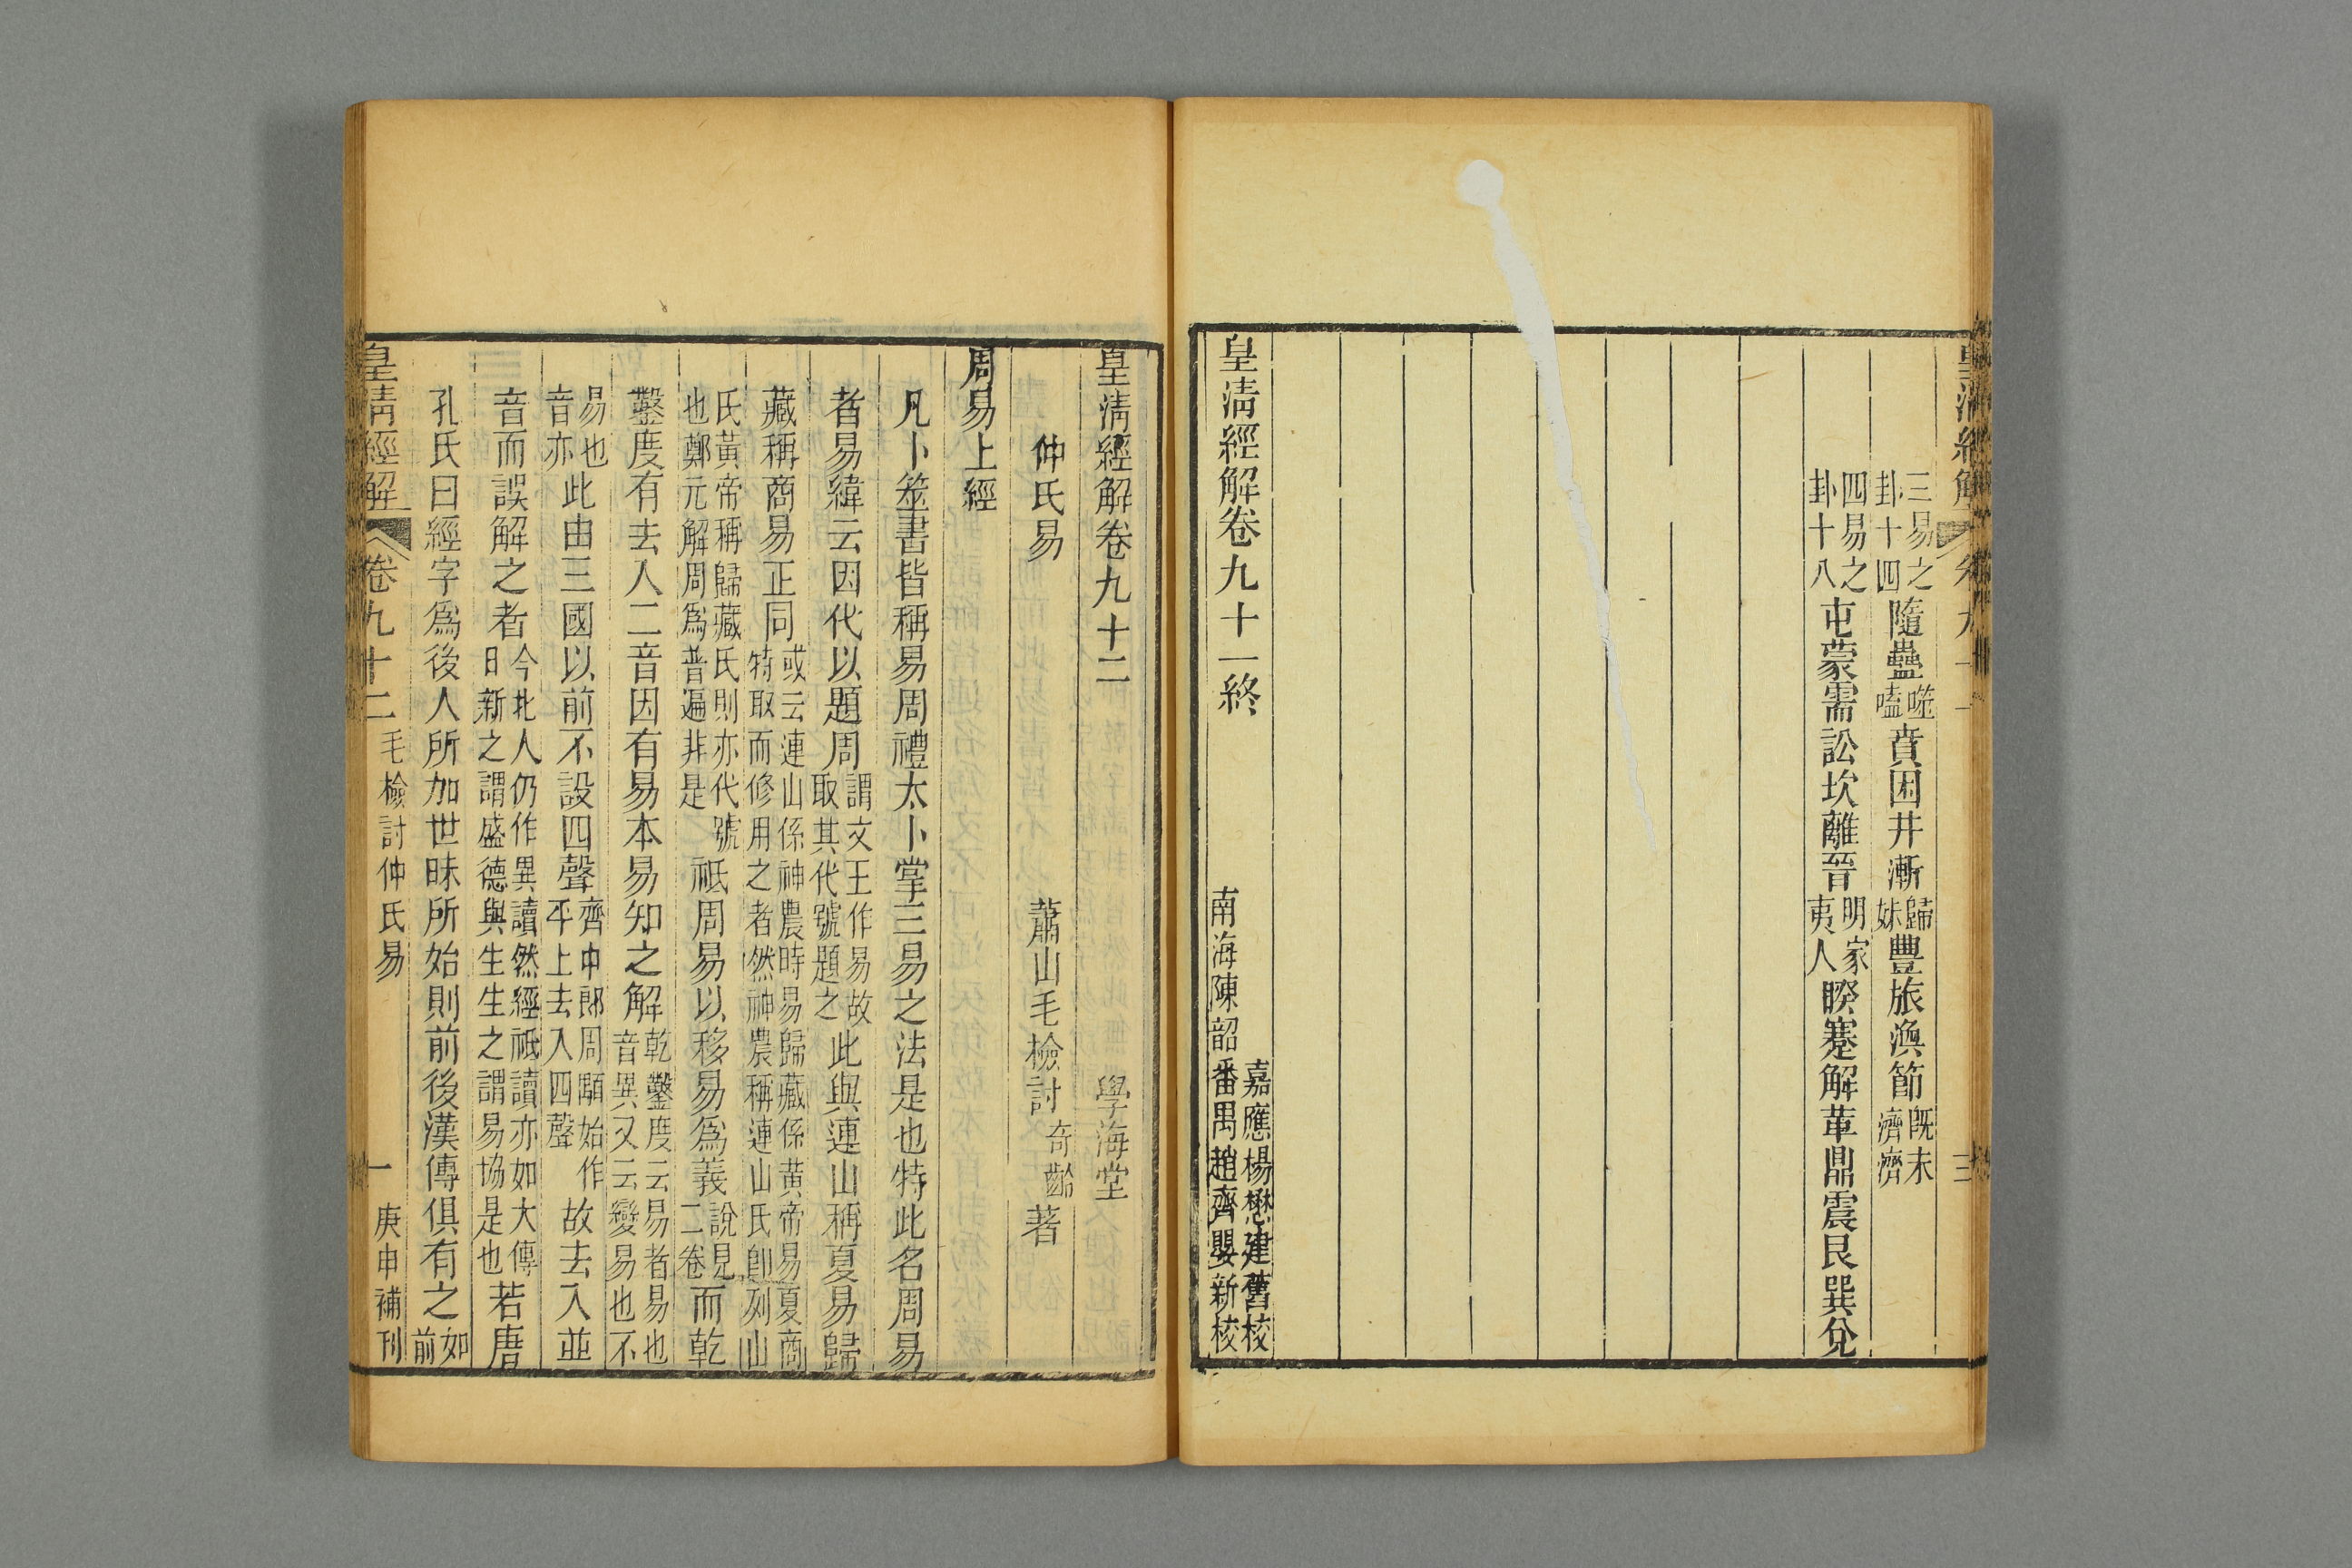 皇清經解
三易之卦十四隨蠱噬嗑賁困井漸歸妹豐旅渙節既濟未濟
四易之卦十八屯蒙需訟坎離晉明夷家人睽蹇解革鼎震艮巽兌
皇清經解卷九十一終
南海陳韶
嘉應楊懋建舊校
番禺趙齊嬰新校
皇清經解卷九十二
學海堂
仲氏易
蕭山毛檢討奇齡著
周易上經
凡卜筮書皆稱易周禮太卜掌三易之法是也特此名周易
者易緯云因代以題周謂文王作易故取其代號題之此與連山稱夏易歸
藏稱商易正同或云連山係神農時易歸藏係黃帝易夏商特取而修用之者然神農稱連山氏卽列山
氏黃帝稱歸藏氏則亦代號也鄭元解周爲普遍非是祗周易以移易爲義說見二卷而乾
鑿度有去人二音因有易本易知之解乾鑿度云易者易也音異又云變易也不
易也音亦此由三國以前不設四聲齊中郎周顒始作平上去入四聲故去入並
音而誤解之者今北人仍作異讀然經祗讀亦如大傳日新之謂盛德與生生之謂易協是也若唐
孔氏曰經字爲後人所加世昧所始則前後漢傳俱有之如前
皇清經解
卷九十二
毛檢討仲氏易
一
庚申補刊